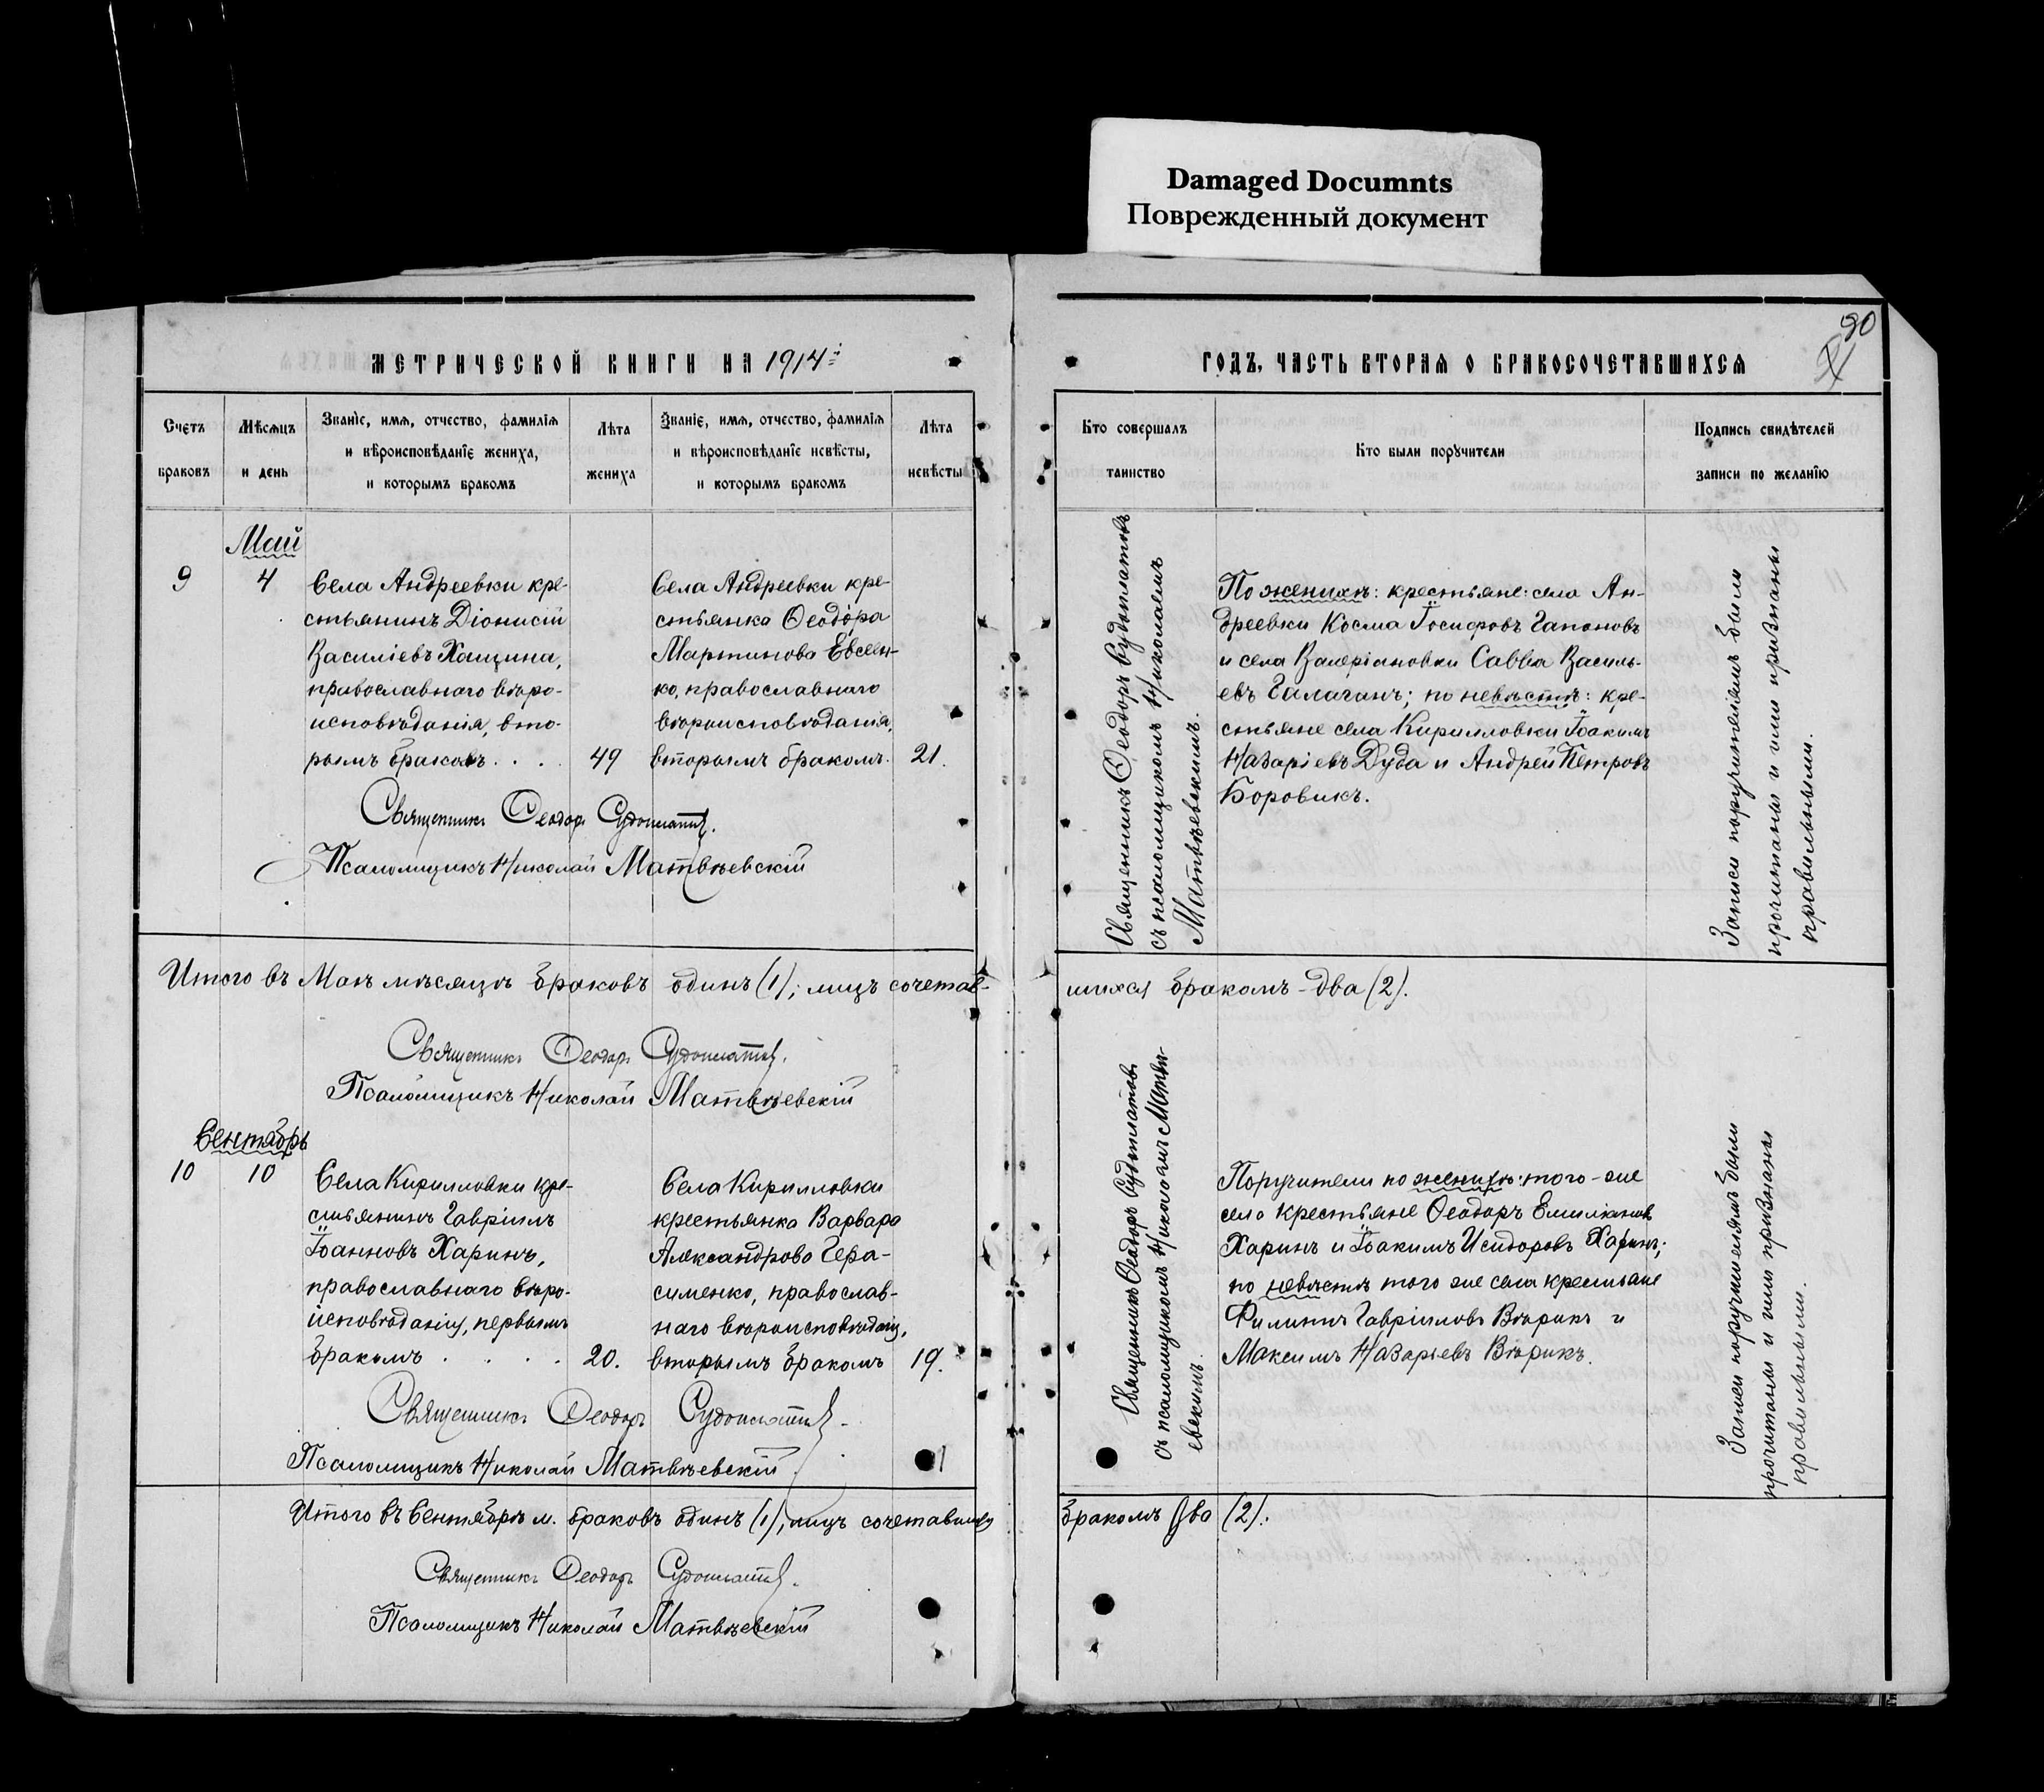 Damaged Documnts
Поврежденный документ
90
МЕТРИЧЕСКОЙ КНИГИ НА 1914 й
ГОДЪ, ЧАСТЬ ВТОРАЯ О БРАКОСОЧЕТАВШИХСЯ
Счетъ браковъ
Мѣсяцъ и день
Званіе, имя, отчество, фамилія
и вѣроисповѣданіе жениха,
и которымъ бракомъ
Лѣта жениха
Званіе, имя, отчество, фамилія
и вѣроисповѣданіе невѣсты,
и которымъ бракомъ
Лѣта невѣсты
Кто совершалъ таинство
Кто были поручители
Подпись свидѣтелей
записи по желанію
Май
9
4
Села Андреевки кре-
стьянинъ Діонисій
Василіевъ Хащина,
православнаго вѣро-
исповѣданія, вто-
рымъ бракомъ . . . .
49
Села Андреевки кре-
стьянка Ѳеодора
Мартинова Евсеен-
ко, православнаго
вѣроисповѣданія,
вторымъ бракомъ.
21.
Священникъ Ѳеодоръ Судоплатовъ
съ псаломщикомъ Николаемъ
Матвѣевскимъ.
По женихѣ: крестьяне: села Ан-
дреевки Косма Іосифовъ Гапоновъ
и села Валеріановки Савва Василь-
евъ Галаганъ; по невѣстѣ: кре-
стьяне села Кирилловки Іоакимъ
Назаріевъ Дуда и Андрей Петровъ
Боровикъ.
Записи поручителямъ были
прочитаны и ими признаны
правильными.
Священникъ Ѳеодоръ Судоплатовъ.
Псаломщикъ Николай Матвѣевскій
Итого въ Маѣ мѣсяцѣ браковъ одинъ (1); лицъ сочетав-
шихся бракомъ - два (2).
Священникъ Ѳеодоръ Судоплатовъ.
Псаломщикъ Николай Матвѣевскій
Сентябрь
10
10
Села Кирилловки кре-
стьянинъ Гавріилъ
Іоанновъ Харинъ,
православнаго вѣро-
исповѣданія, первымъ
бракомъ . . . .
20.
Села Кирилловки
крестьянка Варвара
Александрова Гера-
сименко, православ-
наго вѣроисповѣданія,
вторымъ бракомъ
19.
Священникъ Ѳеодоръ Судоплатовъ
съ псаломщикомъ Николаемъ Матвѣ-
евскимъ.
Поручители по женихѣ: того-же
села крестьяне Ѳеодоръ Емиліановъ
Харинъ и Іоакимъ Исидоровъ Харинъ;
по невѣстѣ того же села крестьяне
Филиппъ Гавріиловъ Вѣрикъ и
Максимъ Назарьевъ Вѣрикъ.
Записи поручителямъ были
прочитаны и ими признаны
правильными.
Священникъ Ѳеодоръ Судоплатовъ.
Псаломщикъ Николай Матвѣевскій
Итого въ Сентябрѣ м. браковъ одинъ (1), лицъ сочетавшихся
бракомъ два (2).
Священникъ Ѳеодоръ Судоплатовъ.
Псаломщикъ Николай Матвѣевскій